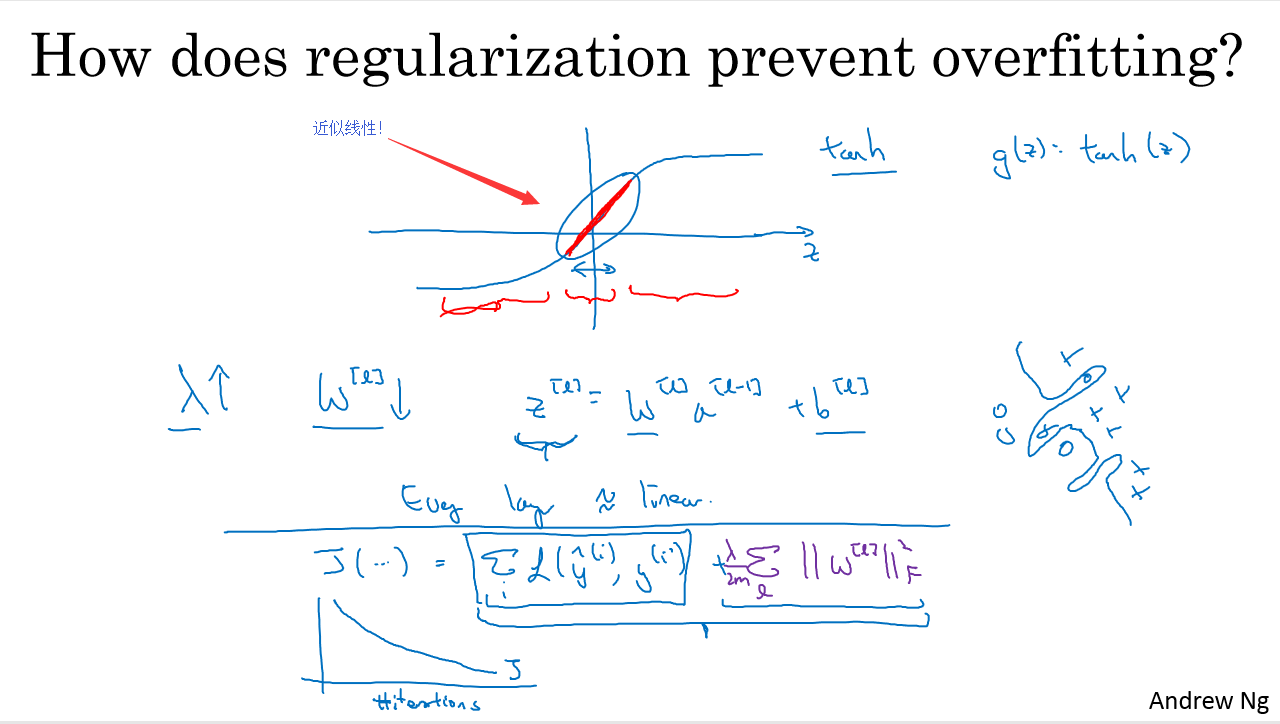 How does regularization prevent overfitting?
近似线性!
tanh
g(z) = tanh(z)
z
λ↑ W^[l]↓ z^[l] = W^[l] a^[l-1] + b^[l]
Every layer ≈ linear.
J(...) = Σ_i L(ŷ^(i), y^(i)) + λ/2m Σ_l ||W^[l]||²_F
J
#iterations
Andrew Ng